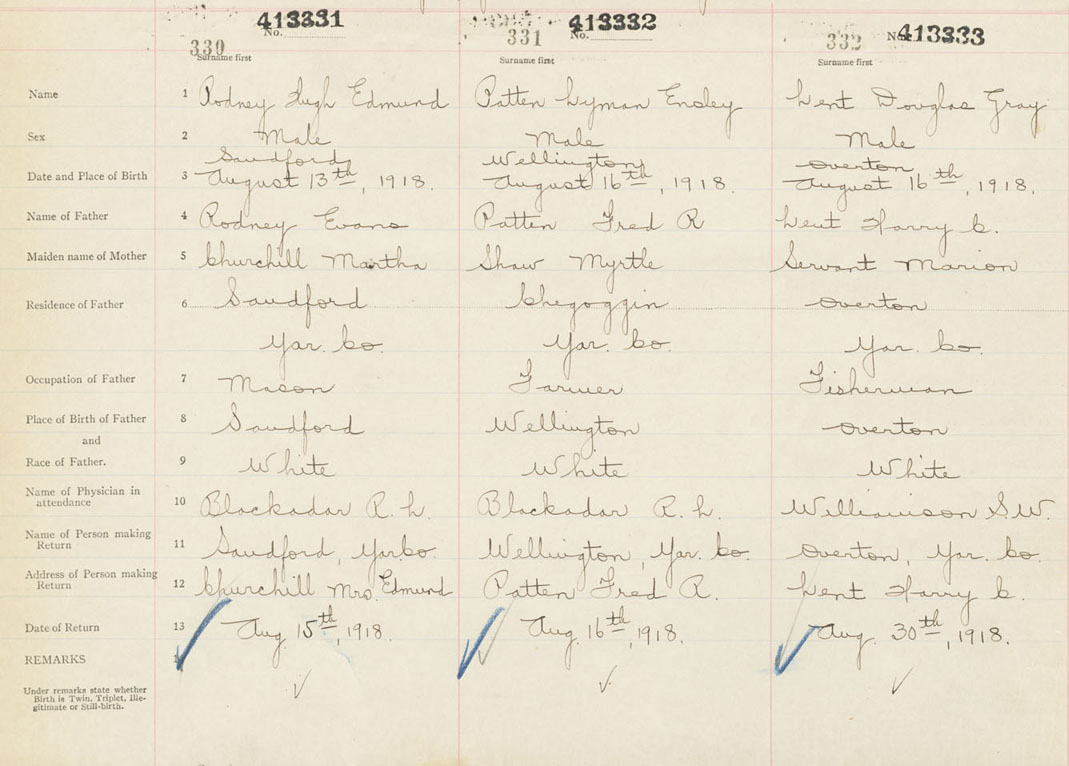 413331 413332 413333
No. No. No.
330 331 332
Surname first Surname first Surname first
Name 1 Rodney Hugh Edmund Patten Lyman Ensley Lent Douglas Gray
Sex 2 Male Male Male
Sandford Wellington Overton
Date and Place of Birth 3 August 13th, 1918. August 16th, 1918. August 16th, 1918.
Name of Father 4 Rodney Evans Patten Fred R Lent Harry C.
Maiden name of Mother 5 Churchill Martha Shaw Myrtle Servant Marion
Residence of Father 6 Sandford Chegoggin Overton
Yar. Co. Yar. Co. Yar. Co.
Occupation of Father 7 Mason Farmer Fisherman
Place of Birth of Father 8 Sandford Wellington Overton
and
Race of Father. 9 White White White
Name of Physician in
attendance 10 Blackadar R. L. Blackadar R. L. Williamson S. W.
Name of Person making
Return 11 Sandford, Yar Co. Wellington, Yar. Co. Overton, Yar. Co.
Address of Person making
Return 12 Churchill Mrs. Edmund Patten Fred R. Lent Harry C.
Date of Return 13 Aug. 15th, 1918. Aug. 16th, 1918. Aug. 30th, 1918.
REMARKS
Under remarks state whether
Birth is Twin, Triplet, Ille-
gitimate or Still-birth.